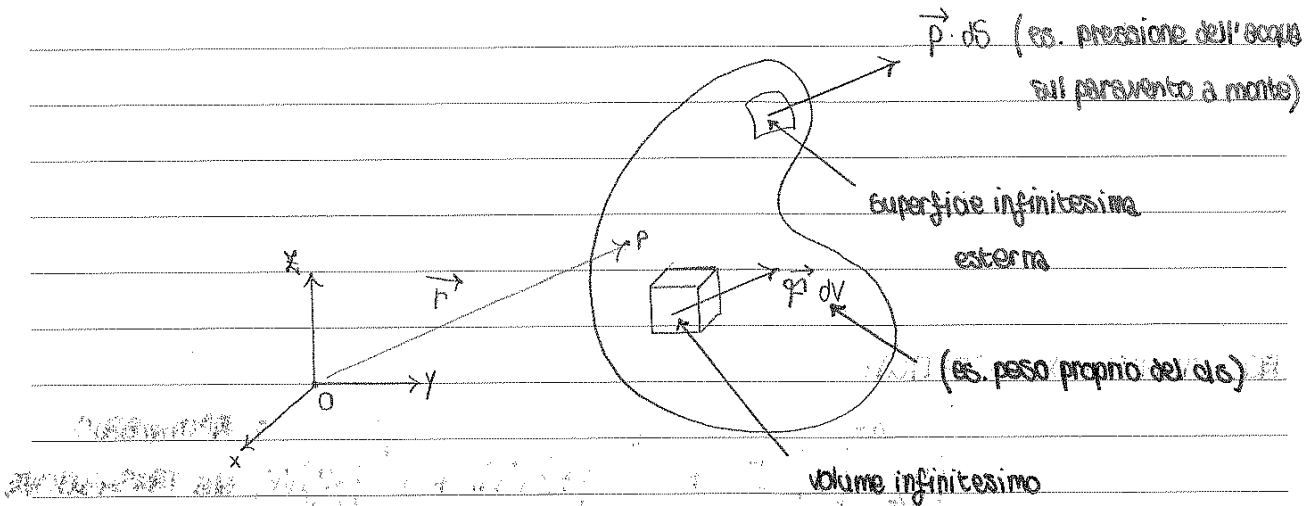 p · dS (es. pressione dell'acqua
sul paravento a monte)
superficie infinitesima
esterna
P
z
r
dV
y
O
(es. peso proprio del cls)
x
volume infinitesimo